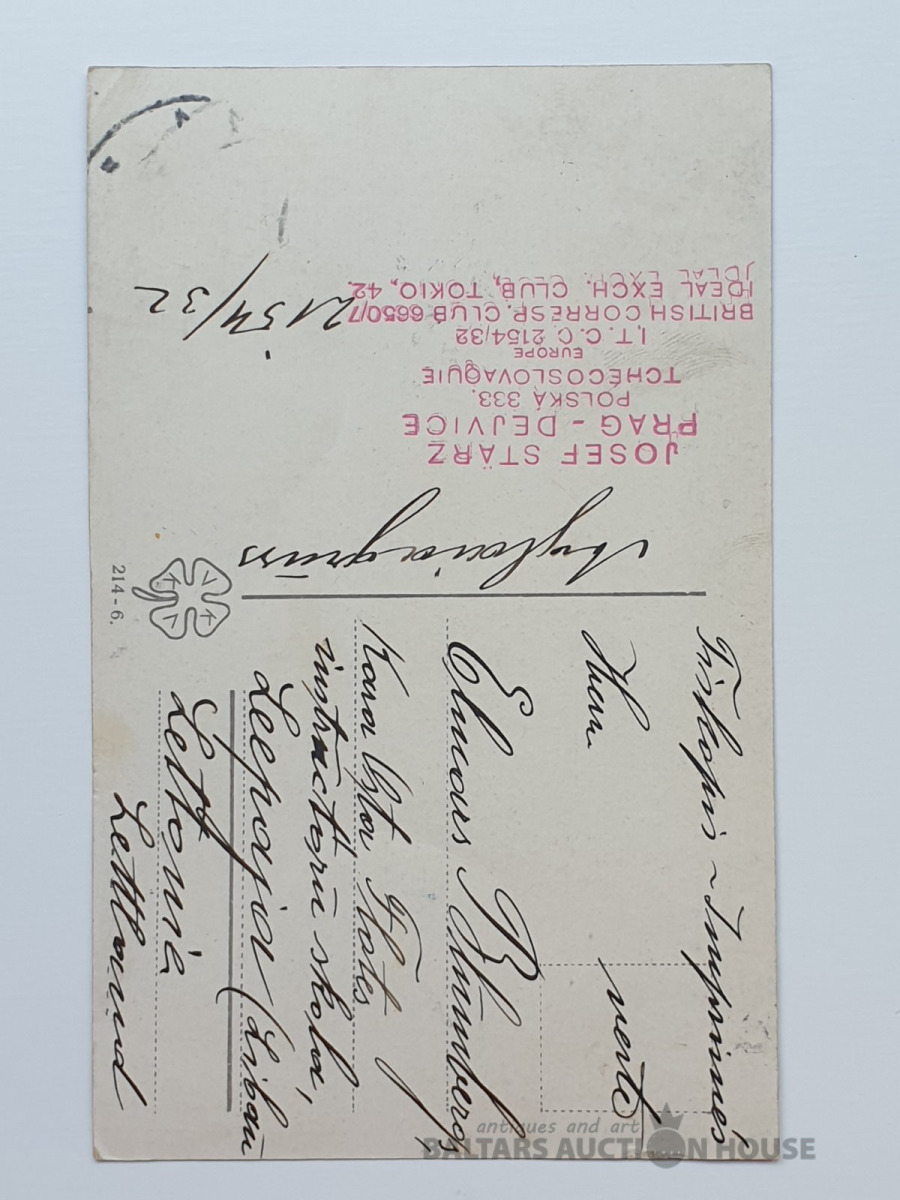 JOSEF STÄRZ
PRAG - DEJVICE
POLSKÁ 333.
TCHÉCOSLOVAQUIE
EUROPE
I.T.C.C. 2154/32
BRITISH CORRESP. CLUB 6650/7
IDEAL EXCH. CLUB, TOKIO, 42.
IDEAL EXCH.
2154/32
214-6.
Tiskopis - Imprimés
Herrn
verte
Elmars Blumbergs,
Kara Ostā Flotes
instructoru skola,
Leepaja (Libau
Lettonie
Lettland
antiques and art
BALTARS AUCTION HOUSE